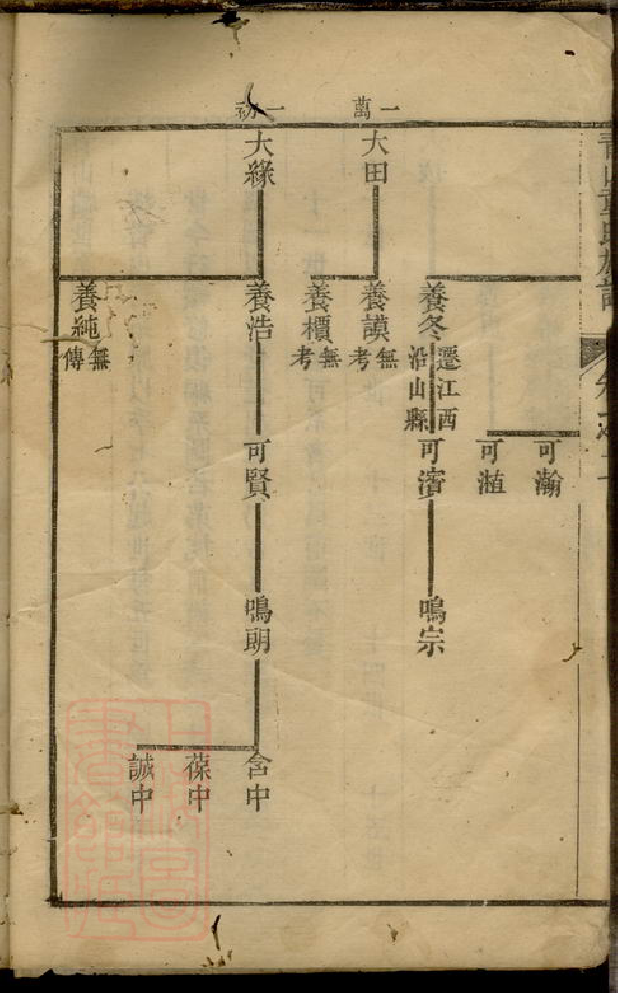 萬一
初一
大田
大緣
養冬
遷江西
沿山縣
養謨
無考
養櫃
無考
養浩
養純
無傳
可瀚
可㴰
可濱
可賢
鳴宗
鳴明
含中
葆中
誠中